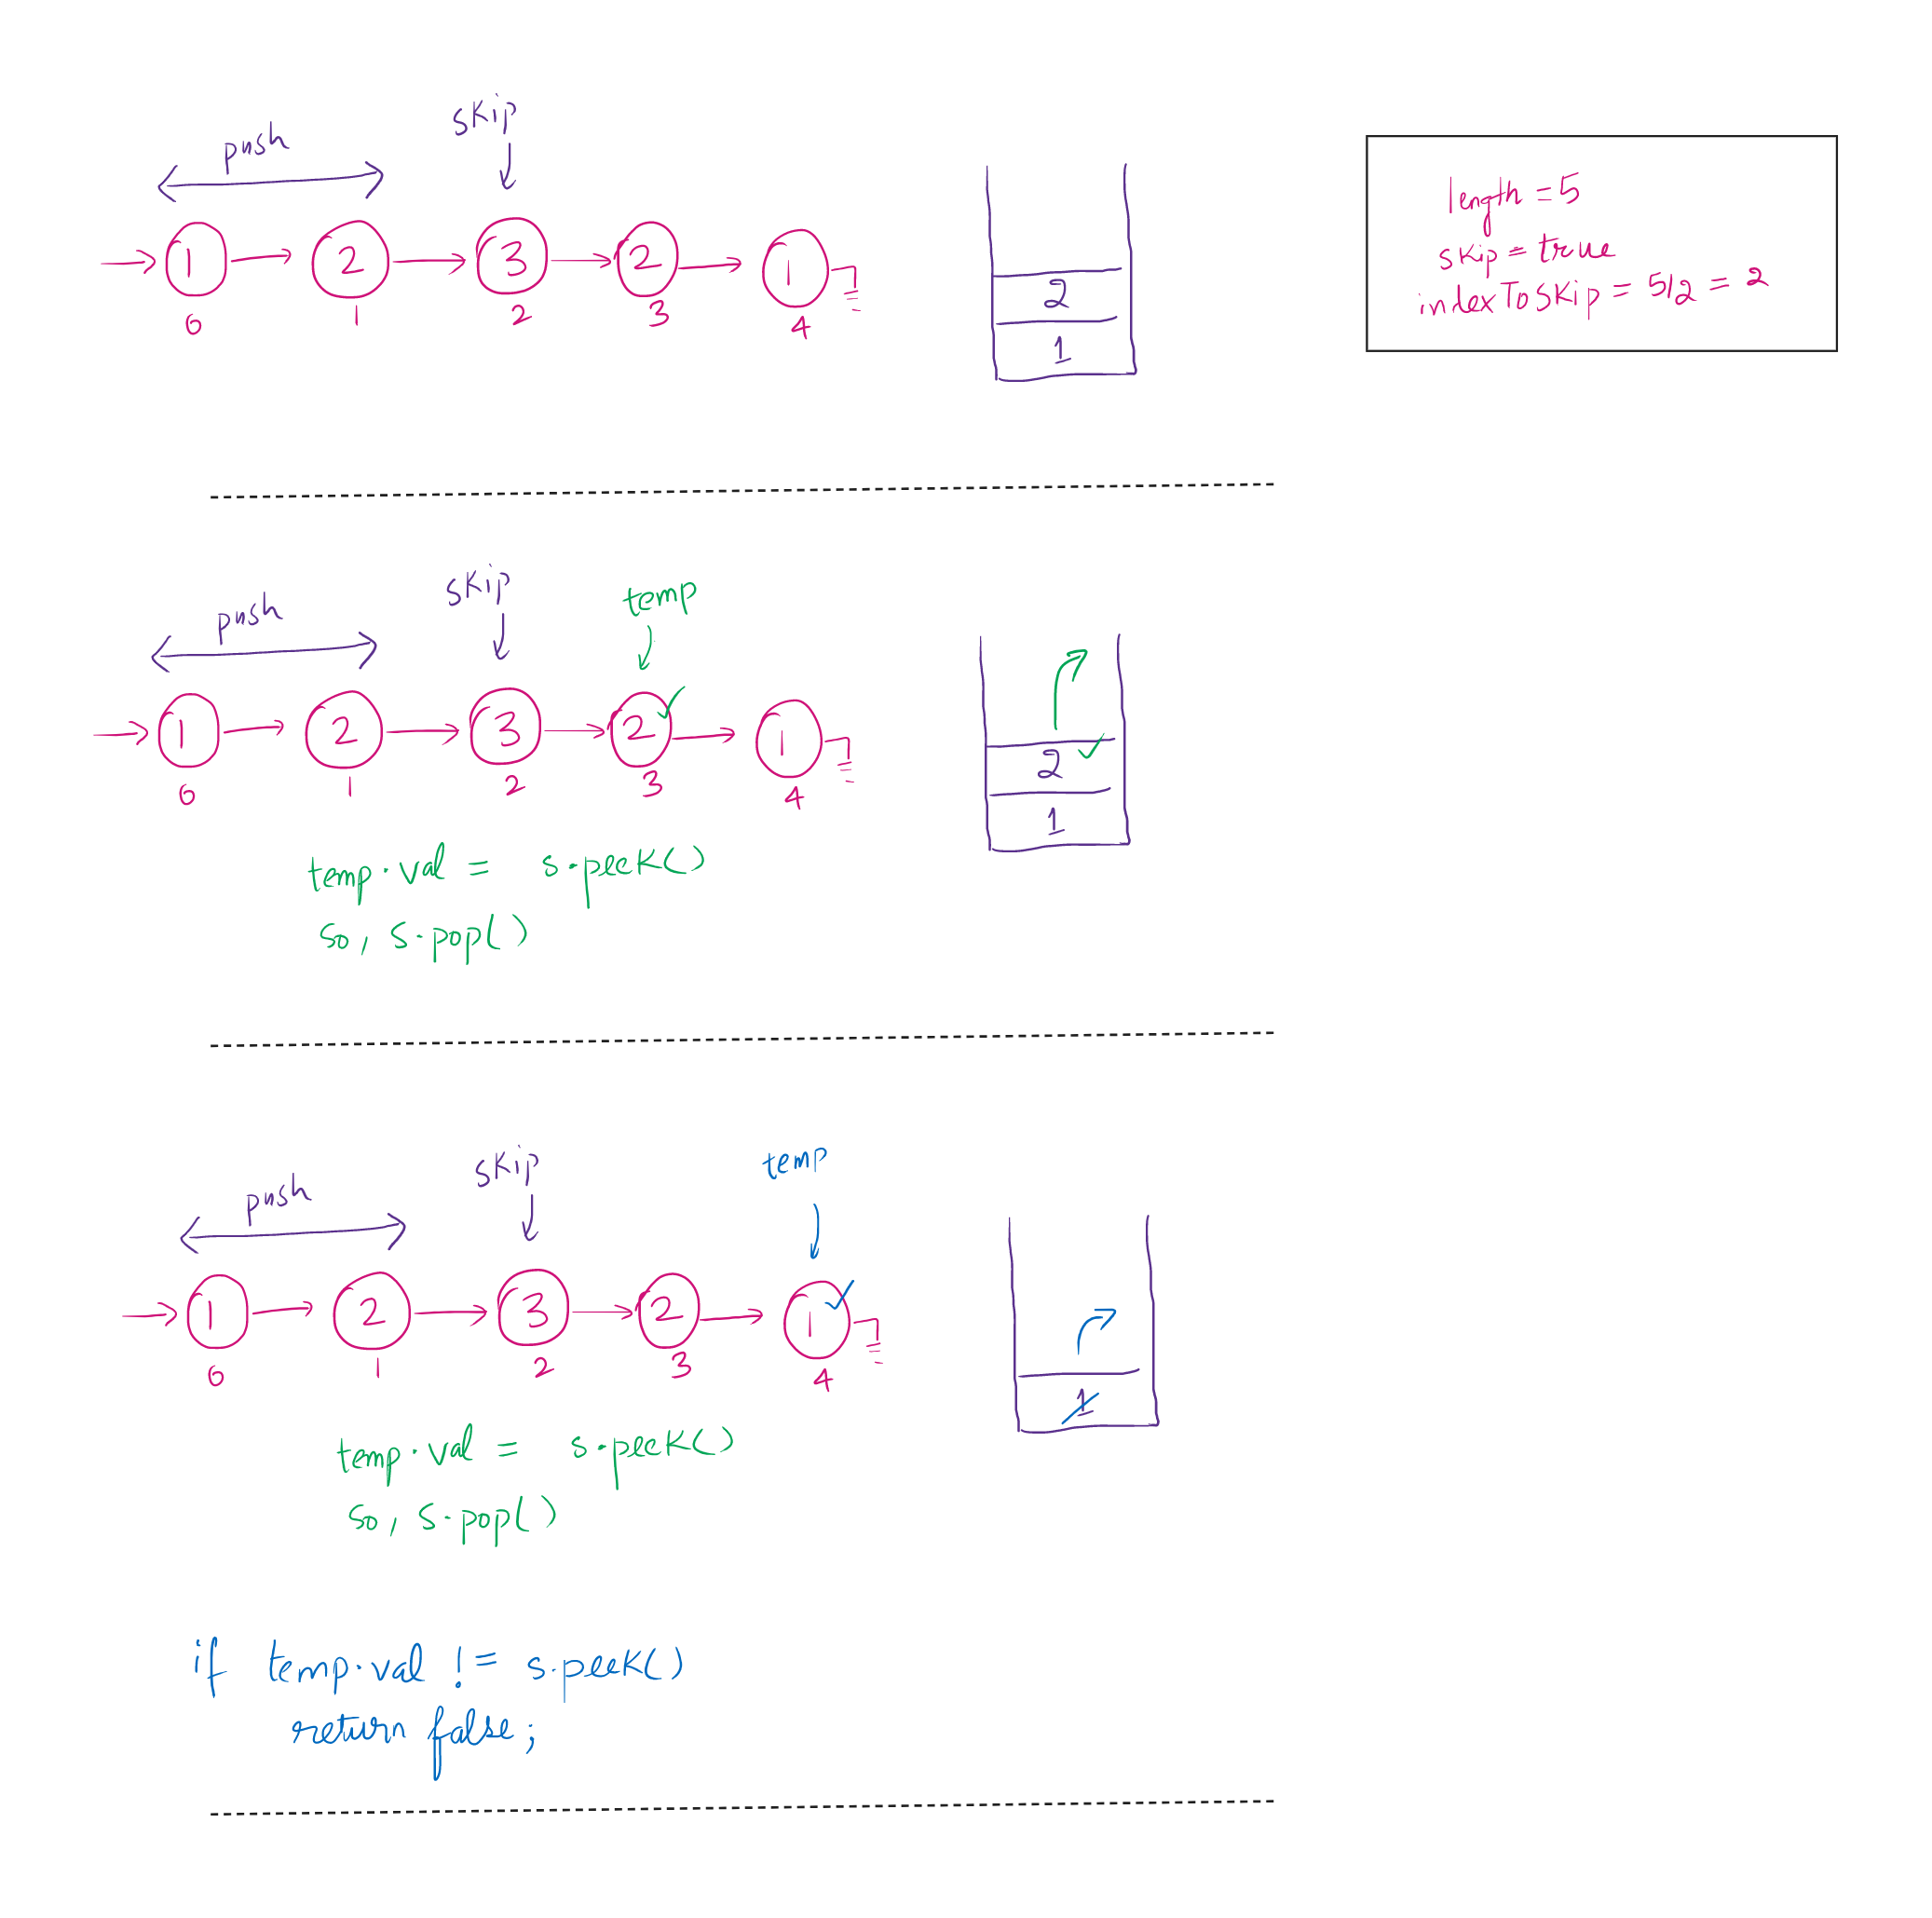 push
skip
1 2 3 2 1
0 1 2 3 4
2
1
length = 5
skip = true
indexToSkip = 5/2 = 2
push
skip
temp
1 2 3 2 1
0 1 2 3 4
2
1
temp.val = s.peek()
so, s.pop()
push
skip
temp
1 2 3 2 1
0 1 2 3 4
1
temp.val = s.peek()
so, s.pop()
if temp.val != s.peek()
return false;